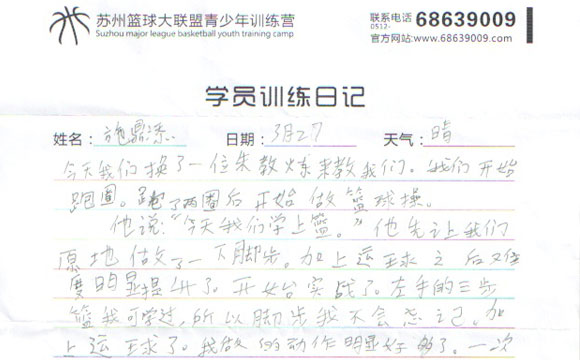 苏州篮球大联盟青少年训练营
Suzhou major league basketball youth training camp
联系电话 0512- 68639009
官方网站:www.68639009.com
学员训练日记
姓名:施鼎添 日期:3月27 天气:晴
今天我们换了一位朱教炼来教我们。我们开始
跑圈。跑了两圈后开始做篮球操。
他说:“今天我们学上篮。”他先让我们
原地做了一下脚步。加上运球之后难
度明显提升了。开始实战了。左手的三步
篮我可学过,所以脚步我不会忘记。加
上运球了。我做的动作明显好够了。一次